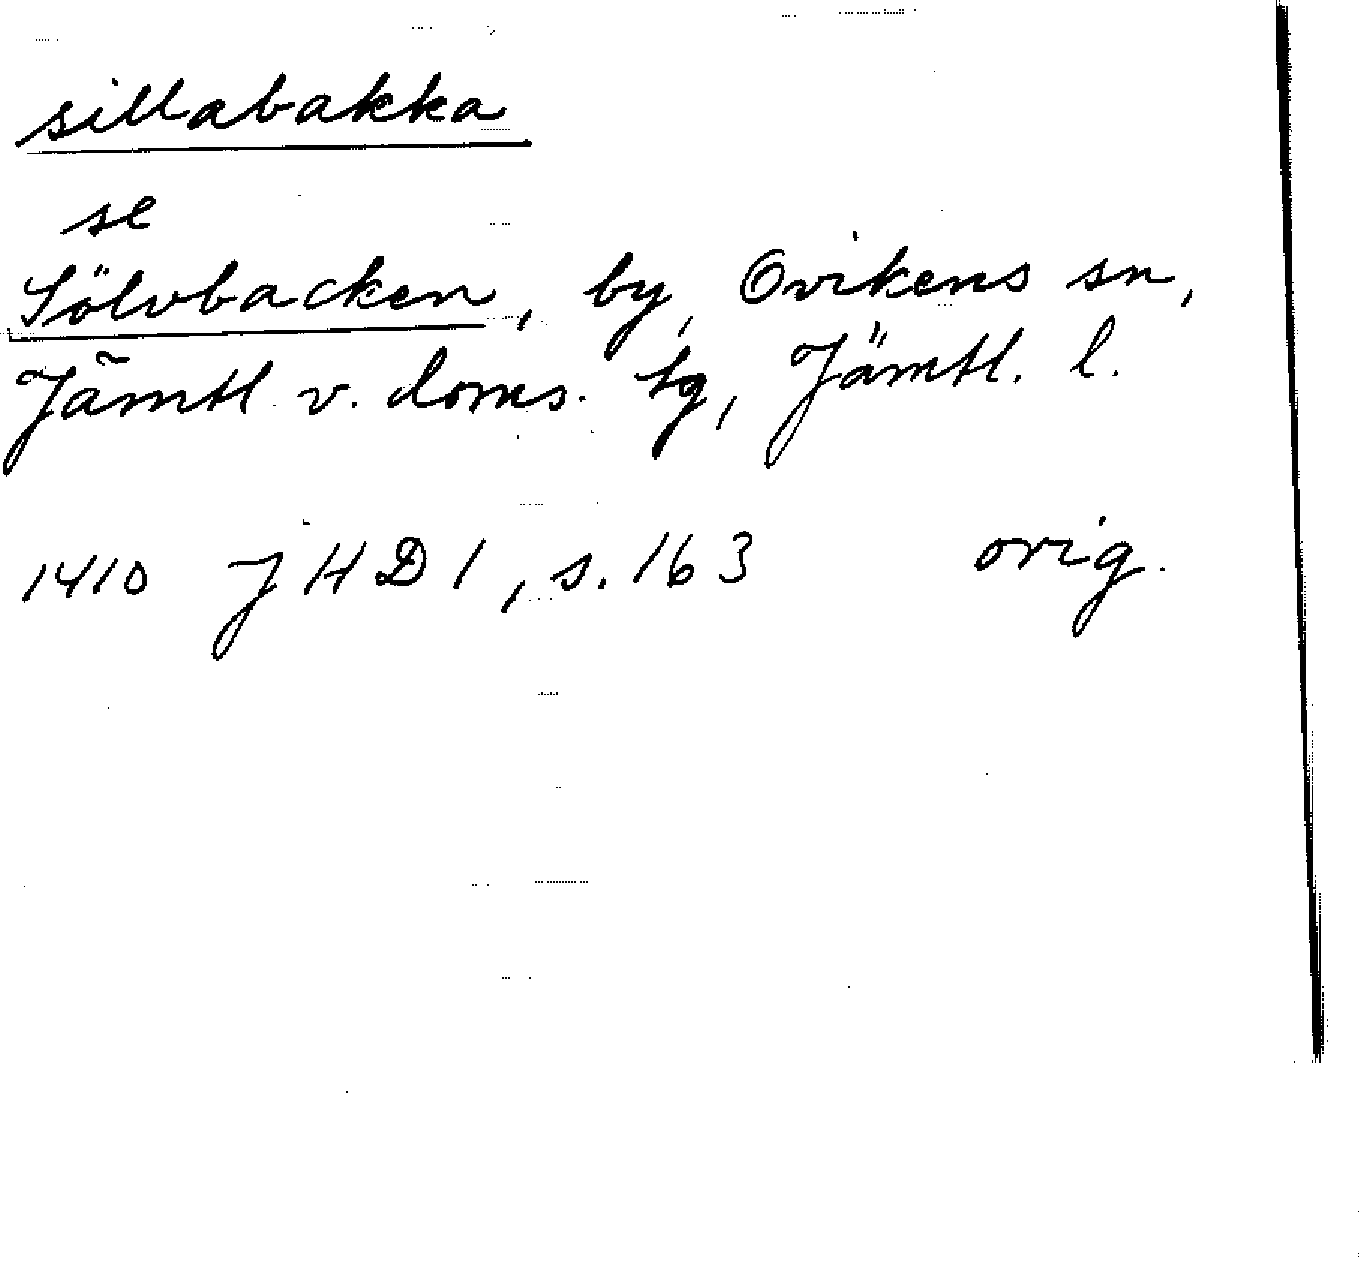 sillabakka
se
Sölvbacken, by, Ovikens sn,
Jämtl v. doms. tg, Jämtl. l.
1410 JHD 1, s. 163 orig.